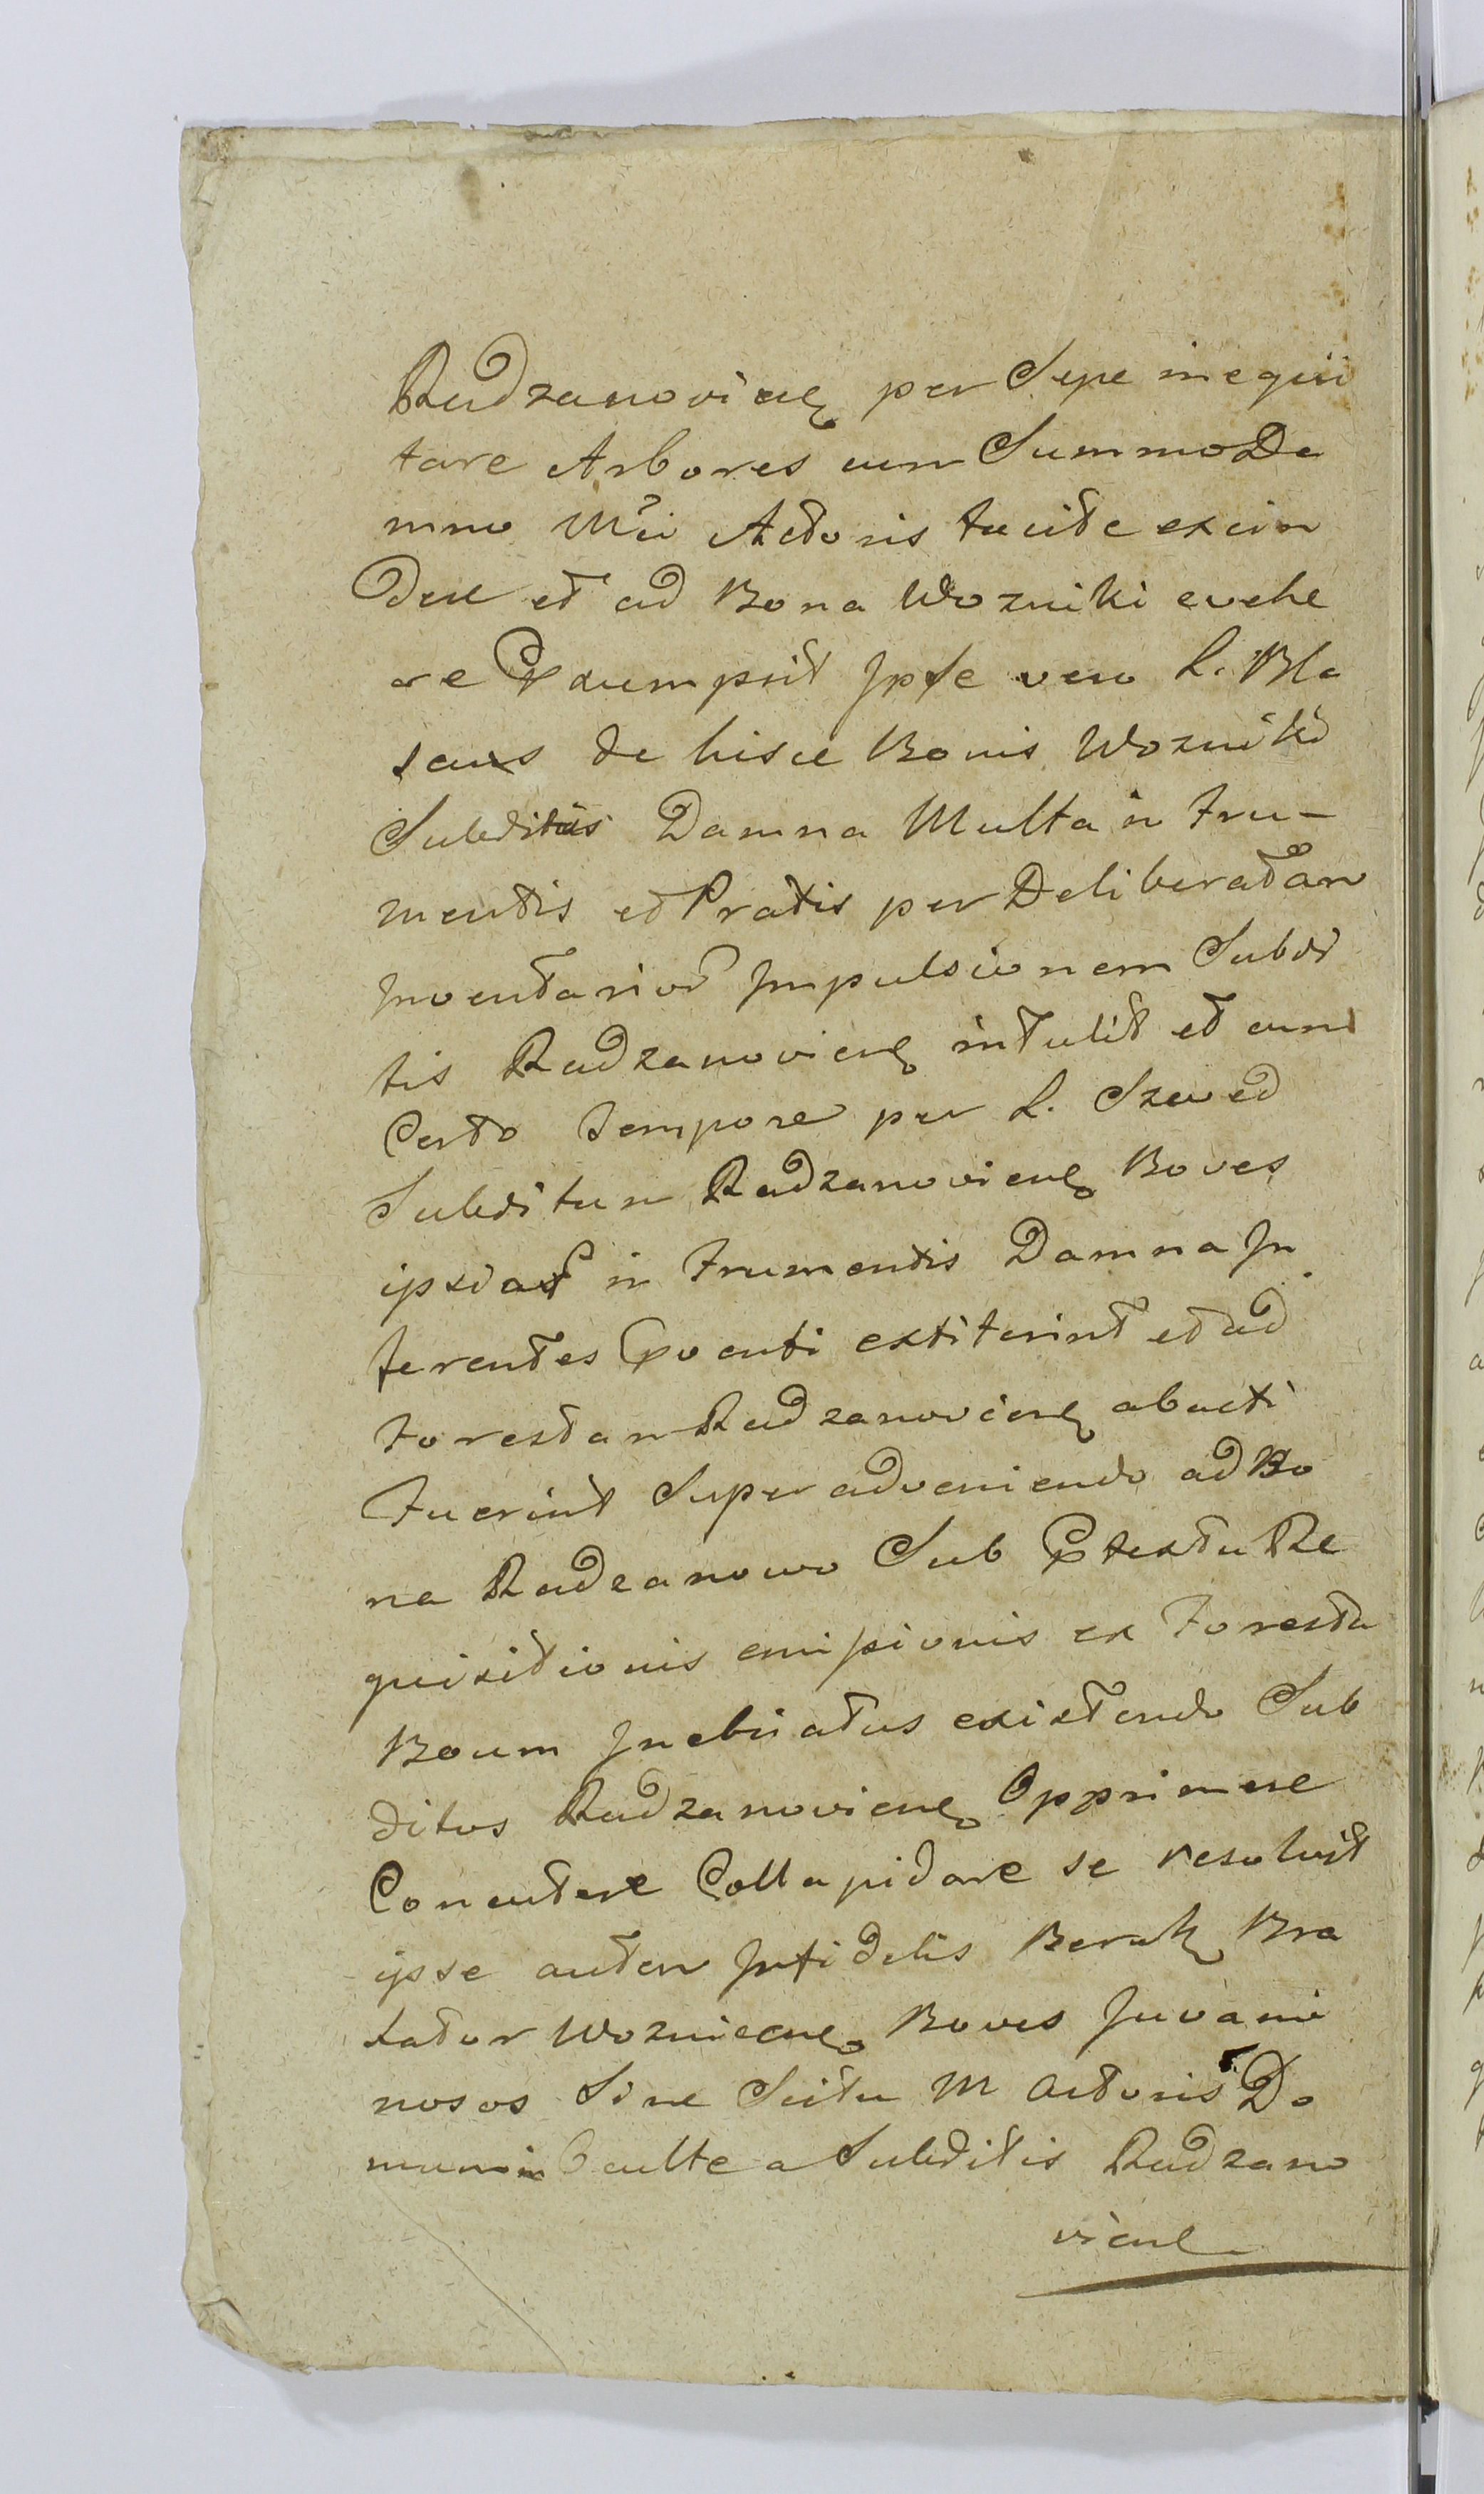 Radzanovien per Sepe inequi
tare Arbores cum Summo Da
mno Mci Actoris tacite excin
dere et ad Bona Wozniki evehe
re Praesumpsit Ipse vero L. Bla
sius de hisce Bonis Wozniki
Subditus Damna Multa in Fru-
mentis et Pratis per Deliberatam
Inventarior Impulsionem Subdi
tis Radzanovien intulit et cum
Certo tempore per L. Szwed
Subditum Radzanovien Boves
ipsius in Frumentis Damna In
ferentes Praeventi extiterint et ad
Forestam Radzanovien abacti
Fuerint Superadveniendo ad Bo
na Radzanowo Sub Praetextu Re
quisitionis emissionis ex Foresta
Boum Inebriatus existendo Sub
ditos Radzanovien Opprimere
Concutere Collapidare se resolvit
ipse autem Infidelis Berek Bra
xator Woznicen Boves Juvami
nosos Sine Scitu M Actoris Do
mum Occulte a Subditis Radzano
vien